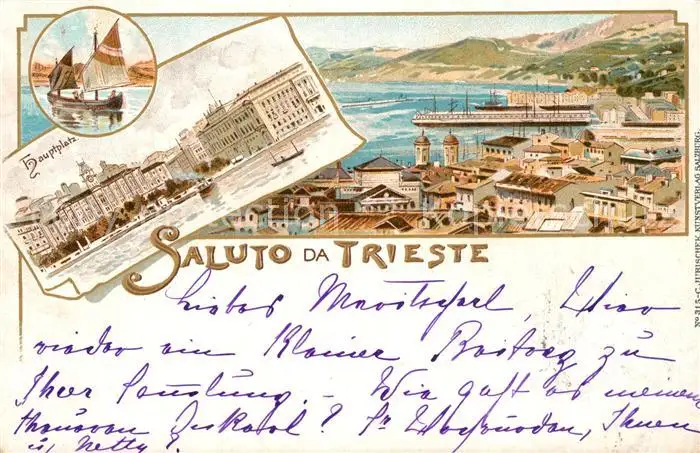 Hauptplatz
SALUTO DA TRIESTE
No 315 - C. JURISCHEK, KUNSTVERLAG SALZBURG.
Liebes Hier
wieder ein Kleiner Beitrag zu
Ihrer Sammlung. - Wie geht es meinem
theueren ? Ihnen
u. Netty?